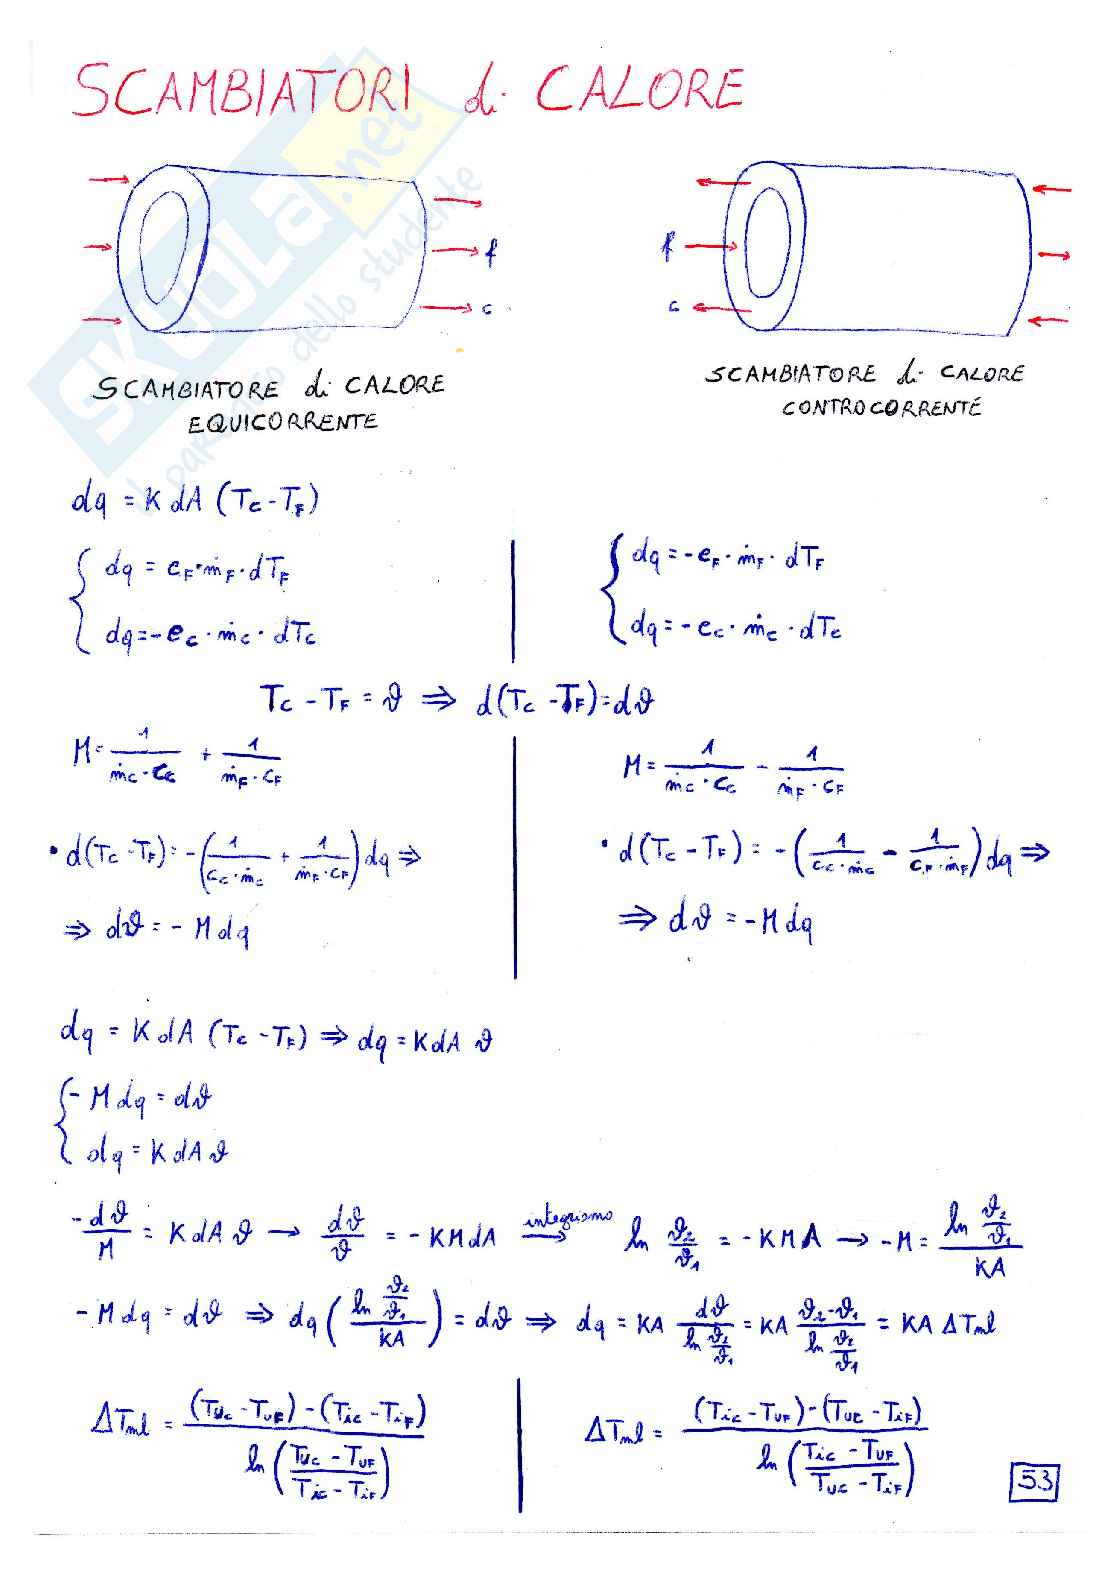 SCAMBIATORI di CALORE
SKUOLA.net
il paradiso dello studente
f
c
f
c
SCAMBIATORE di CALORE
EQUICORRENTE
SCAMBIATORE di CALORE
CONTROCORRENTE
dq = K dA (Tc - TF)
dq = cF · ṁF · dTF
dq = - cc · ṁc · dTc
dq = - cF · ṁF · dTF
dq = - cc · ṁc · dTc
Tc - TF = ϑ ⇒ d(Tc - TF) = dϑ
M = 1/(ṁc · cc) + 1/(ṁF · cF)
M = 1/(ṁc · cc) - 1/(ṁF · cF)
• d(Tc - TF) = -(1/(cc · ṁc) + 1/(ṁF · cF)) dq ⇒
⇒ dϑ = - M dq
• d(Tc - TF) = -(1/(cc · ṁc) - 1/(cF · ṁF)) dq ⇒
⇒ dϑ = - M dq
dq = K dA (Tc - TF) ⇒ dq = K dA ϑ
- M dq = dϑ
dq = K dA ϑ
- dϑ/M = K dA ϑ → dϑ/ϑ = - K M dA integriamo → ln ϑ2/ϑ1 = - K M A → - M = (ln ϑ2/ϑ1)/KA
- M dq = dϑ ⇒ dq ((ln ϑ2/ϑ1)/KA) = dϑ ⇒ dq = KA dϑ/(ln ϑ2/ϑ1) = KA (ϑ2 - ϑ1)/(ln ϑ2/ϑ1) = KA ΔTml
ΔTml = ((Tuc - TuF) - (Tic - TiF))/ln((Tuc - TuF)/(Tic - TiF))
ΔTml = ((Tic - TuF) - (Tuc - TiF))/ln((Tic - TuF)/(Tuc - TiF))
53